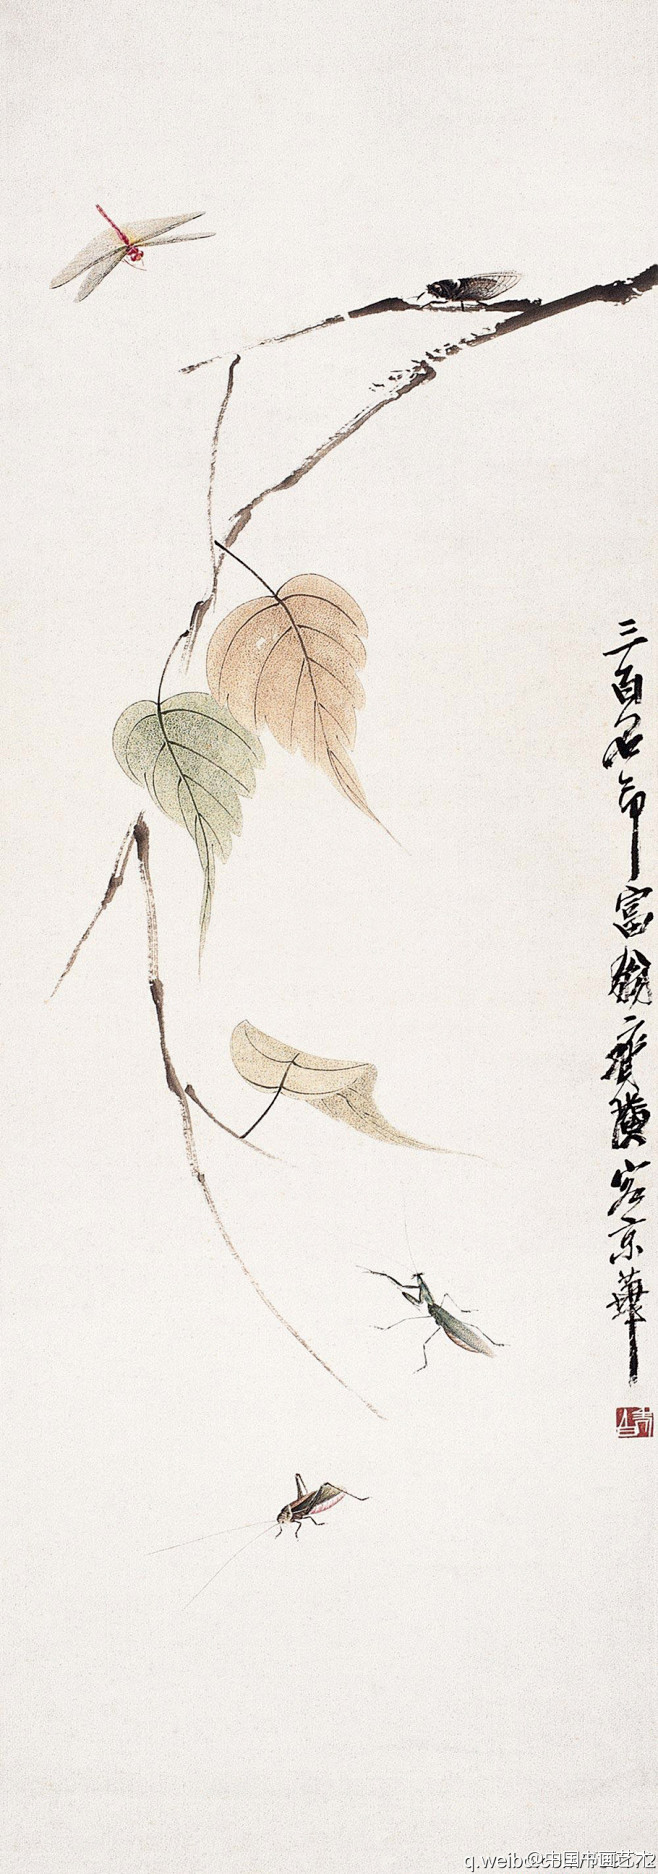 三百石印富翁齊璜客京華
@中国书画艺术